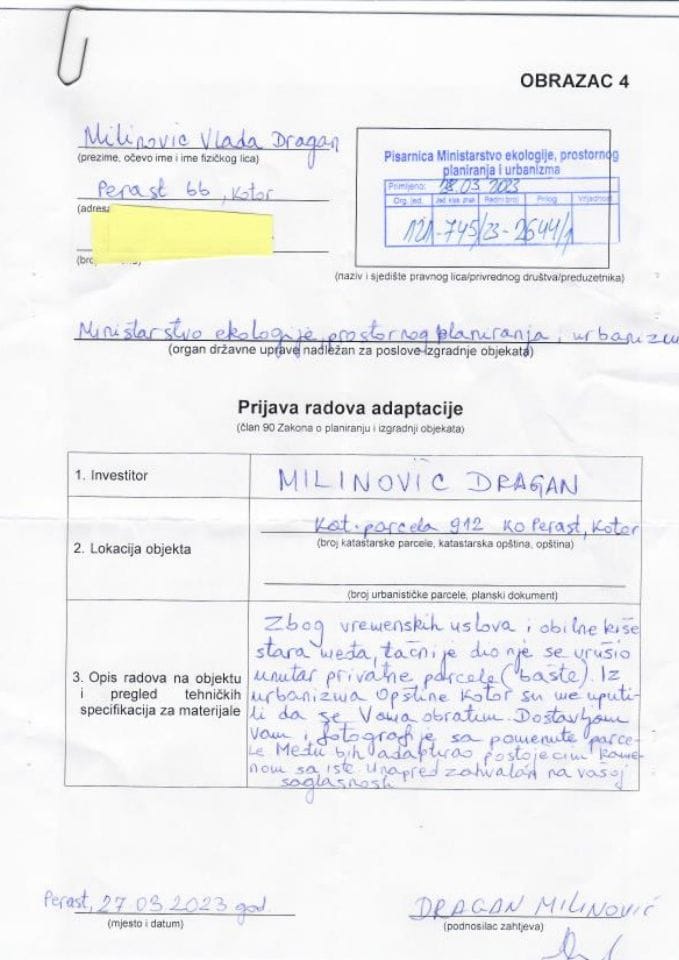 OBRAZAC 4
Milinović Vlada Dragan
(prezime, očevo ime i ime fizičkog lica)
Perast 66, Kotor
(adresa
(bro
Pisarnica Ministarstvo ekologije, prostornog
planiranja i urbanizma
Primljeno: 28.03 2023
Org. jed. Jed. klas. znak Redni broj Prilog Vrijednost
121-745/23-2644/1
(naziv i sjedište pravnog lica/privrednog društva/preduzetnika)
Ministarstvo ekologije, prostornog planiranja i urbanizma
(organ državne uprave nadležan za poslove izgradnje objekata)
Prijava radova adaptacije
(član 90 Zakona o planiranju i izgradnji objekata)
1. Investitor
MILINOVIĆ DRAGAN
2. Lokacija objekta
Kat. parcela 912 KO Perast, Kotor
(broj katastarske parcele, katastarska opština, opština)
(broj urbanističke parcele, planski dokument)
3. Opis radova na objektu
i pregled tehničkih
specifikacija za materijale
Zbog vremenskih uslova i obilne kiše
stara međa, tačnije dio nje se urušio
unutar privatne parcele (bašte). Iz
urbanizma Opštine Kotor su me uputi-
li da se Vama obratim. Dostavljam
Vam i fotografije sa pomenute parce-
le Među bih adaptirao postojećim kame-
nom sa iste. Unapred zahvalan na vašoj
saglasnosti
Perast, 27 03 2023 god.
(mjesto i datum)
DRAGAN MILINOVIĆ
(podnosilac zahtjeva)